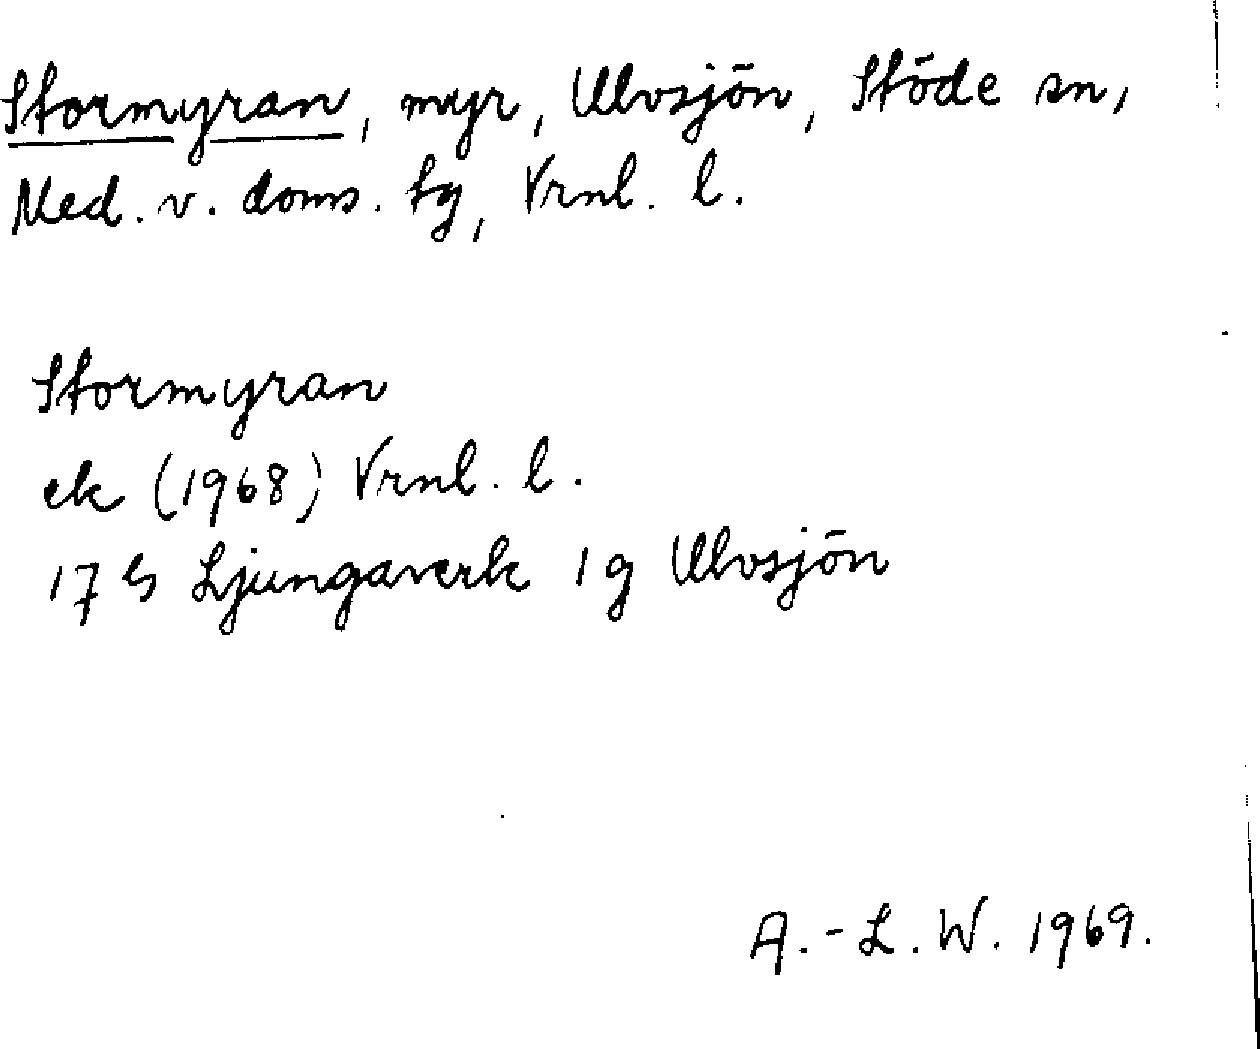 Stormyran, myr, Ulvsjön, Stöde sn,
Med. v. doms. tg, Vrnl. l.
Stormyran
ek (1968) Vrnl. l.
17 G Ljungaverk 1 g Ulvsjön
A.-L. W. 1969.